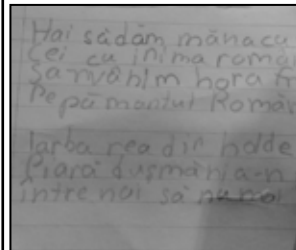 Hai sădăm mănacu
cei cu inima româ
Sanvârhlm hora fr
Pe pămantul Român
Iarba rea din holde
Piară dușmănia-n
intre noi să nu no